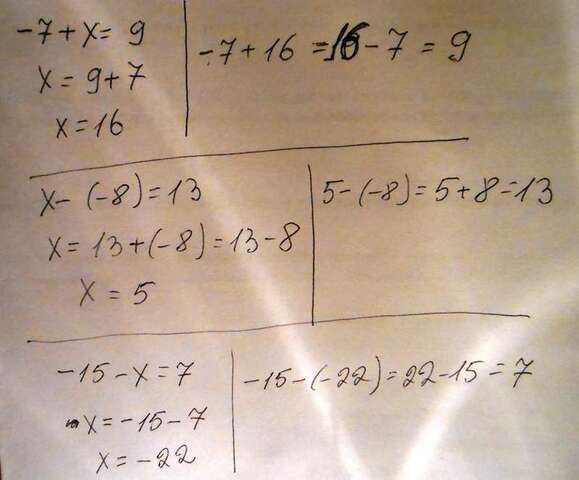 -7+x=9
x=9+7
x=16
-7+16=16-7=9
x-(-8)=13
x=13+(-8)=13-8
x=5
5-(-8)=5+8=13
-15-x=7
x=-15-7
x=-22
-15-(-22)=22-15=7